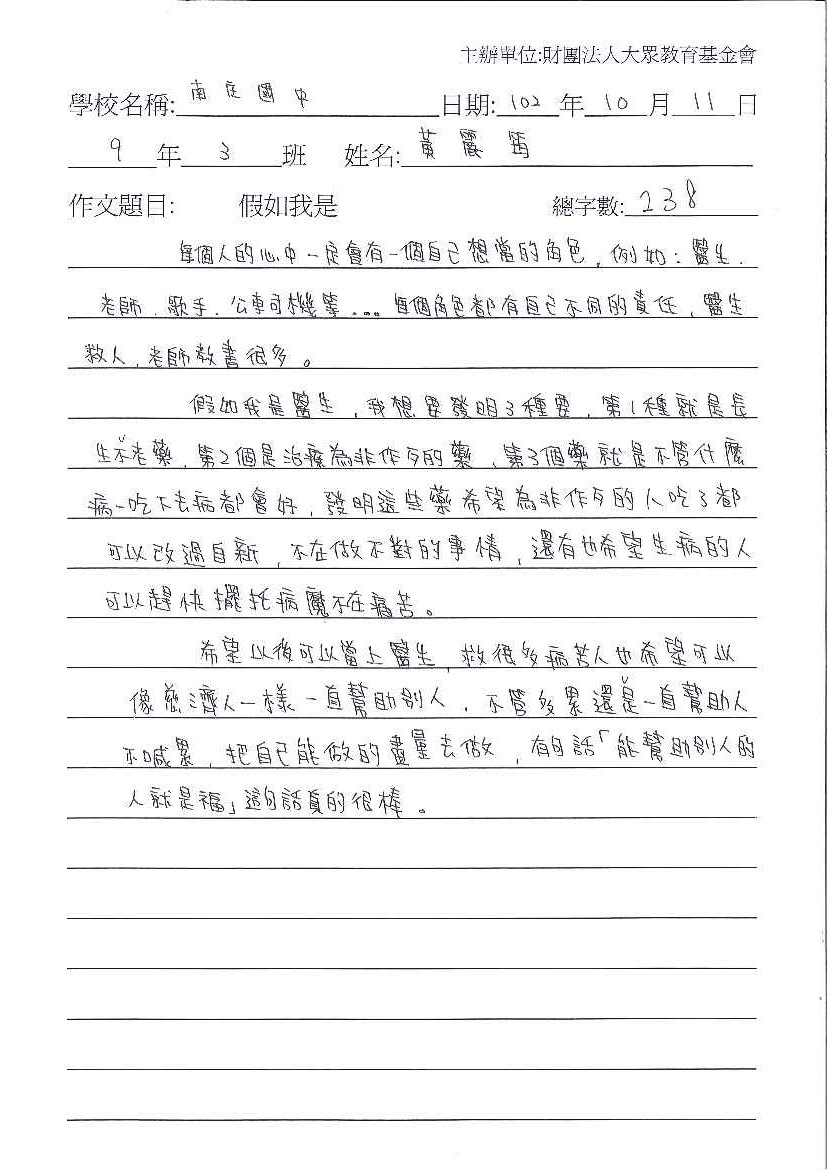 主辦單位:財團法人大眾教育基金會
學校名稱: 南庄國中 日期: 102 年 10 月 11 日
9 年 3 班 姓名: 黃麗筠
作文題目: 假如我是 總字數: 238
每個人的心中一定會有一個自己想當的角色,例如:醫生、
老師、歌手、公車司機等...每個角色都有自己不同的責任,醫生
救人,老師教書很多。
假如我是醫生,我想要發明3種要,第1種就是長
生不老藥,第2個是治療為非作歹的藥,第3個藥就是不管什麼
病一吃下去病都會好,發明這些藥希望為非作歹的人吃了都
可以改過自新,不在做不對的事情,還有也希望生病的人
可以趕快擺托病魔不在痛苦。
希望以後可以當上醫生,救很多病苦人也希望可以
像慈濟人一樣一直幫助別人,不管多累還是一直幫助人
不喊累,把自己能做的盡量去做,有句話「能幫助別人的
人就是福」這句話真的很棒。